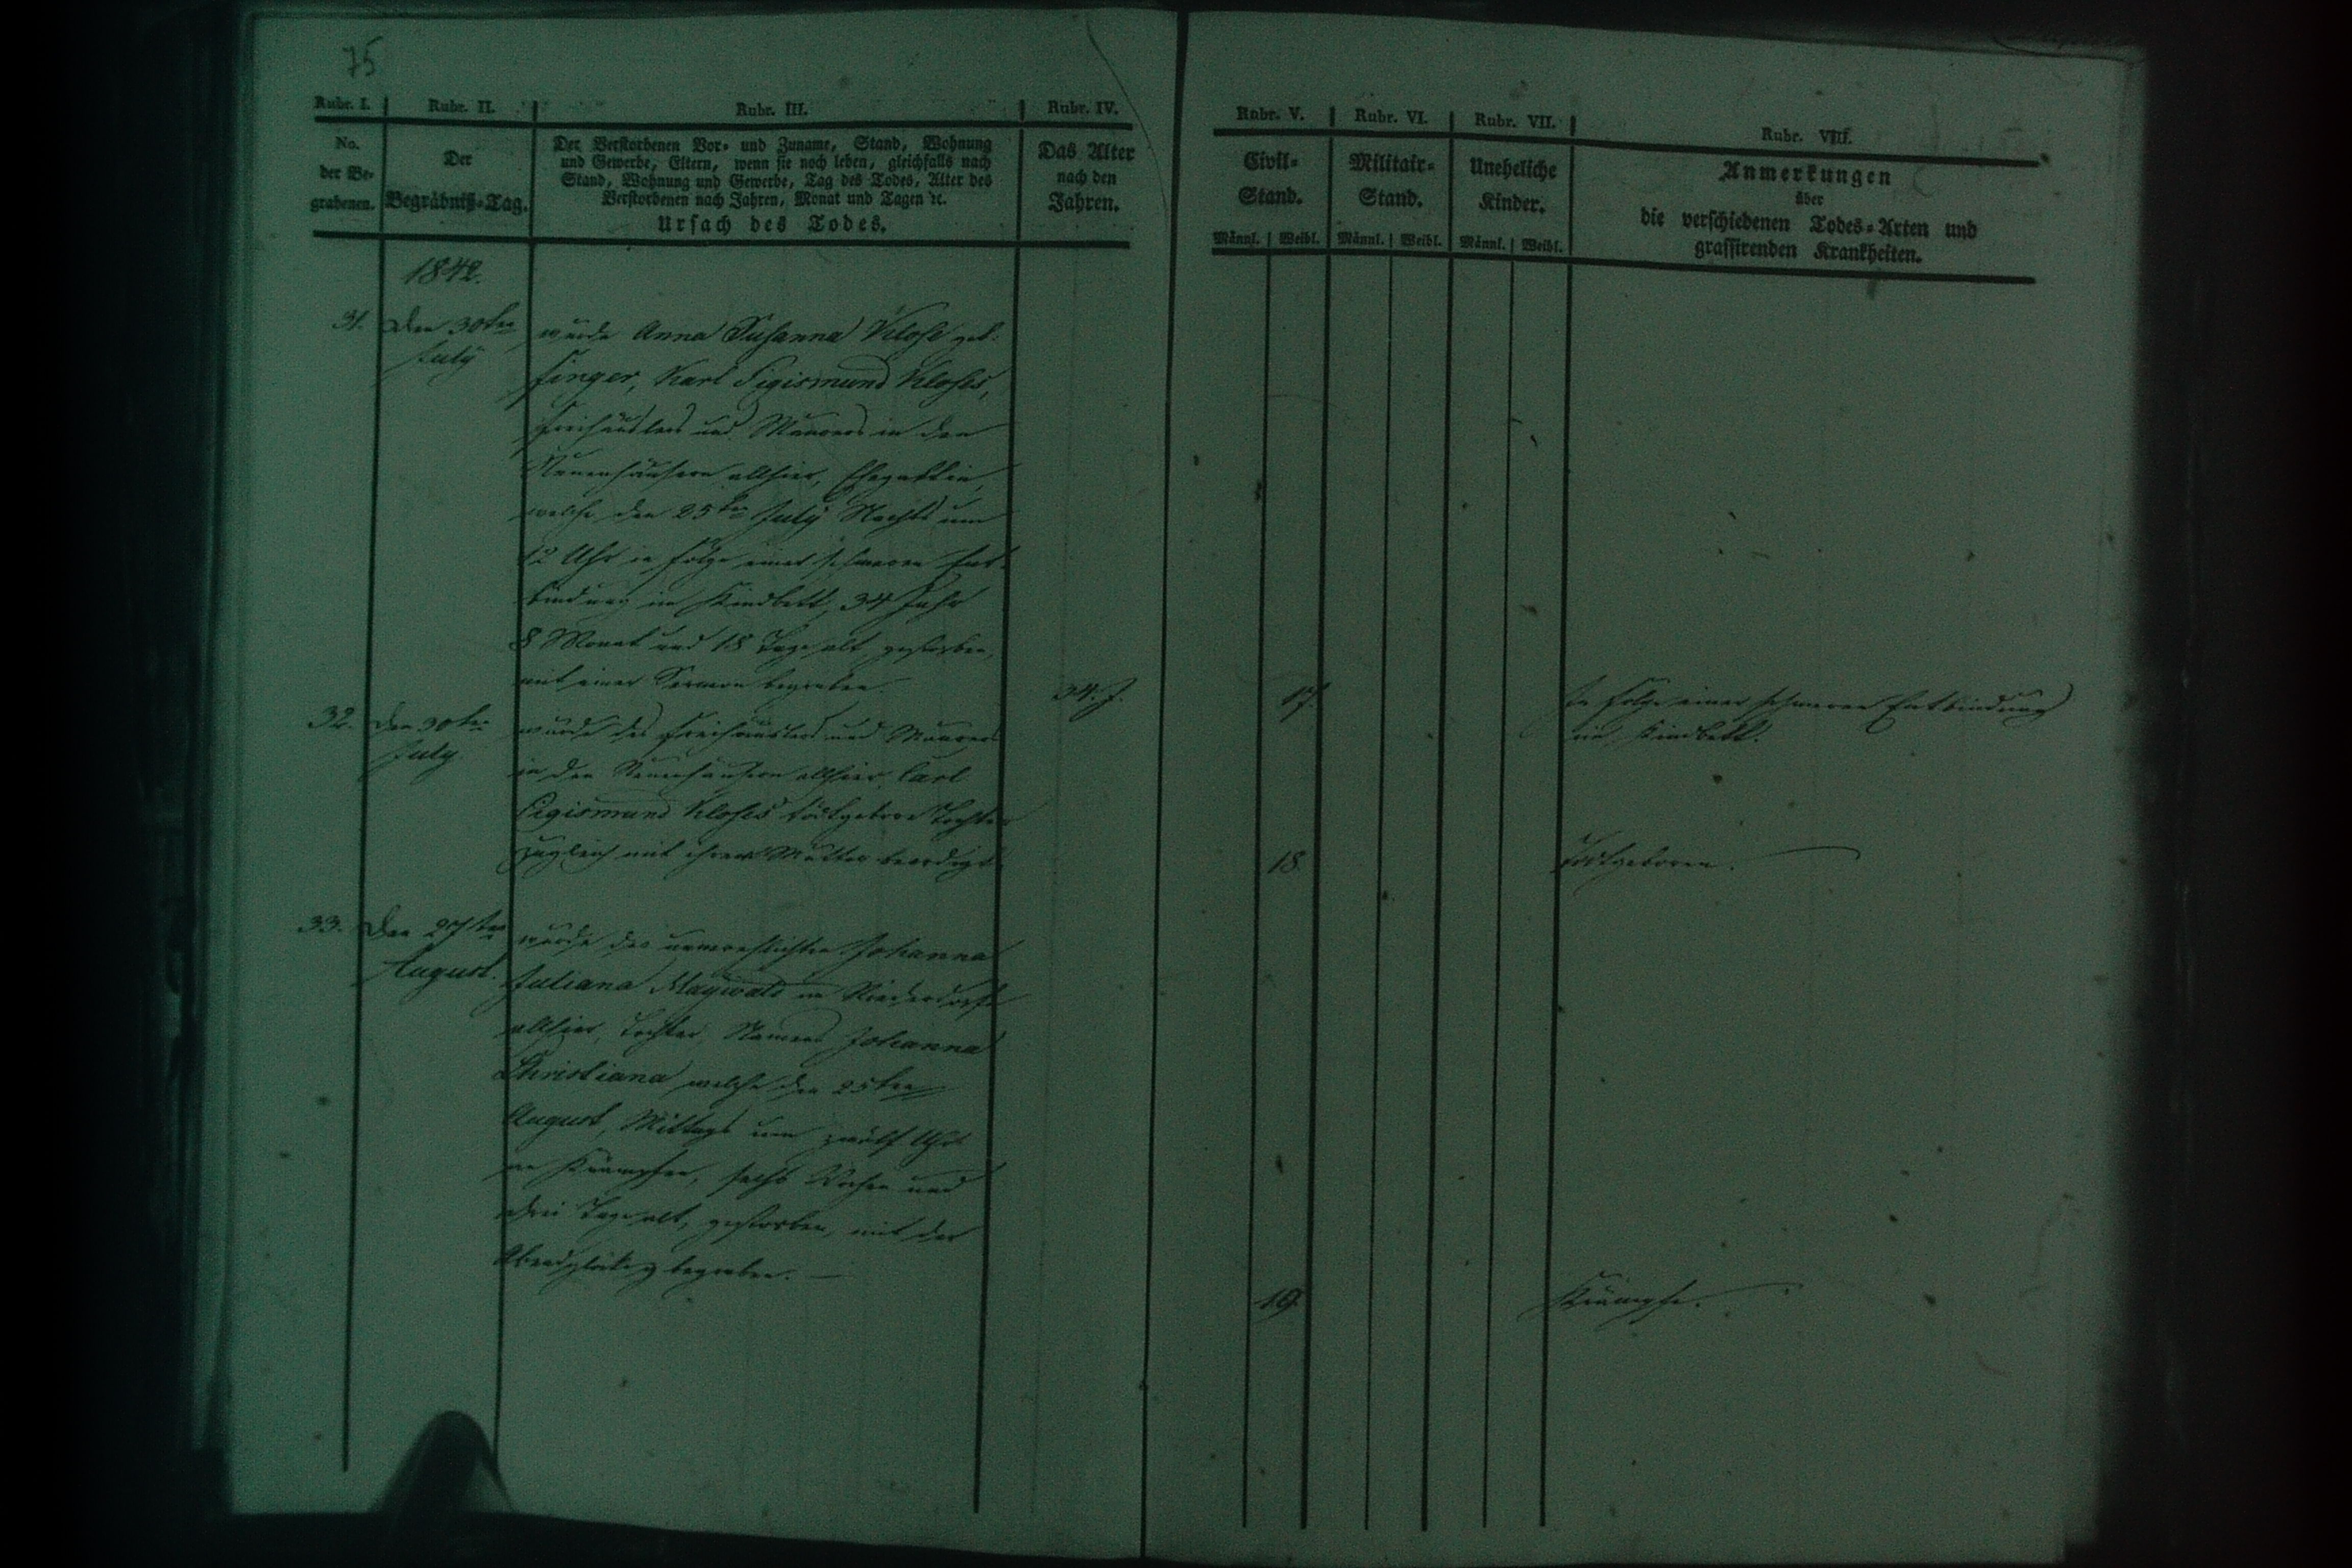 75
Rubr. I.
Rubr. II.
Rubr. III.
Rubr. IV.
No.
der Be=
grabenen.
Der
Begräbniß=Tag.
Der Verstorbenen Vor= und Zuname, Stand, Wohnung
und Gewerbe, Eltern, wenn sie noch leben, gleichfalls nach
Stand, Wohnung und Gewerbe, Tag des Todes, Alter des
Verstorbenen nach Jahren, Monat und Tagen ꝛc.
Ursach des Todes.
Das Alter
nach den
Jahren.
1842.
31. Den 30ten
July
wurde Anna Susanna Klose geb.
Finger, Karl Sigismund Kloses,
Freihäuslers und Maurers in den
Neuenhäusern allhier, Ehegattin,
welche den 25ten July Nachts um
12 Uhr in Folge einer schweren Ent-
bindung im Kindbett, 34 Jahr
8 Monat und 18 Tage alt gestorben,
mit einer Sermon begraben.
34. J.
32. Den 30ten
July.
wurde des Freihäuslers und Maurers
in den Neuenhäusern allhier, Carl
Sigismund Kloses todtgeborne Tochter
zugleich mit ihrer Mutter beerdigt.
33. Den 27ten
August.
wurde der unverehlichten Johanna
Juliana Maywald im Niederdorfe
allhier, Tochter, Namens Johanna
Christiana welche den 25ten
August, Mittags um zwölf Uhr
an Krämpfen, sechs Wochen und
drei Tage alt, gestorben, mit der
begraben. —
Rubr. V.
Rubr. VI.
Rubr. VII.
Rubr. VIII.
Civil=
Stand.
Militair=
Stand.
Uneheliche
Kinder.
Anmerkungen
über
die verschiedenen Todes=Arten und
grassirenden Krankheiten.
Männl. Weibl. Männl. Weibl. Männl. Weibl.
17.
In Folge einer schweren Entbindung
im Kindbett.
18.
Todtgeboren.
19.
Krämpfe.